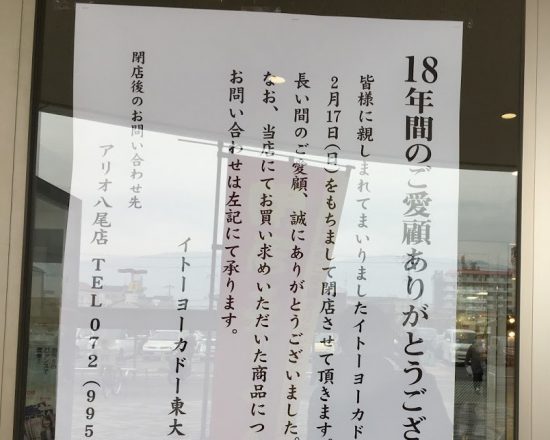 18年間のご愛顧ありがとうござ
皆様に親しまれてまいりましたイトーヨーカド
2月17日(日)をもちまして閉店させて頂きます。
長い間のご愛顧、誠にありがとうございました。
なお、当店にてお買い求めいただいた商品につ
お問い合わせは左記にて承ります。
イトーヨーカドー東大
閉店後のお問い合わせ先
アリオ八尾店 TEL072(995